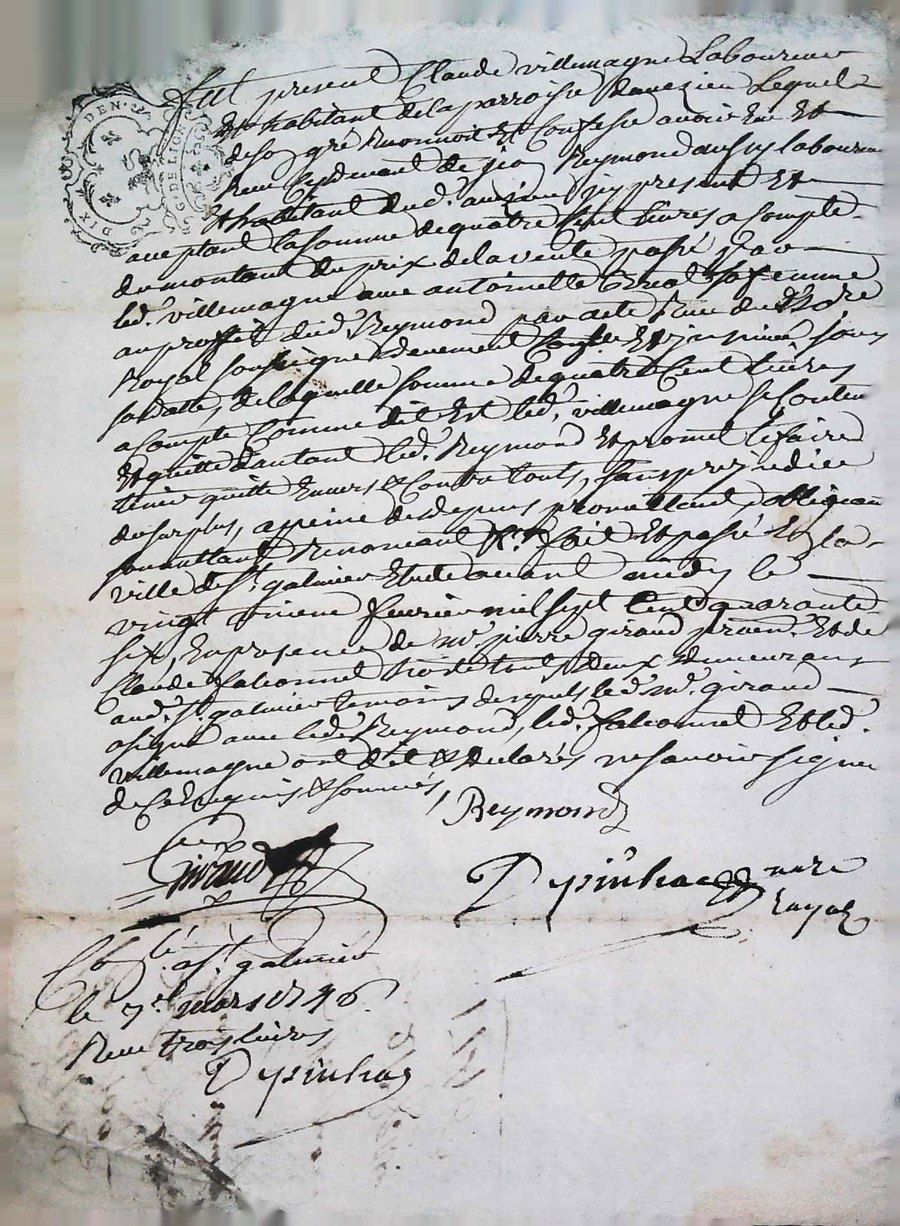 DIX DEN.
G. DE LION
Fut present Claude villemagne Laboureur
Et habitant de la parroisse Lequel
de so gré Reconnoit Et Confesse avoir Eu Et
Receu de Reymond aussy laboureur
Et habitant dud. icy present Et
aceptant la somme de quatre Cent livres a Compte
du montant du prix de la vente passé par
led. villemagne avec antoinette sa femme
au proffit dud. Reymond par acte Receu du No.re
Royal soussigné deuement Et insinué sous
sa datte, de laquelle somme de quatre Cent livres
a Compte Comme dit Est led. villemagne se Conten
Et quitte d'autant led. Reymond Et promet le faire
tenir quitte Envers & Contre touts, sans prejudice
du surplus, a peine de depens promettant obligean
soumettant Renoncant &.a fait Et passé En la
ville de S.t galmier Etude avant midy le
vingt février mil sept Cent quarante
six, En presence de m.e pierre giraud Et de
Claude falconnet de tous deux demeurans
aud. S.t galmier temoins desquels led. m.e giraud
a signé avec led. Reymond, led. falconnet Et led.
villemagne ont dit & declarés ne savoir signer
de Ce Enquis & sommés,
Reymond
Giraud
Depinhac nore
royal
C.lé a S.t galmier
le 7.e mars 1746
Receu trois livres
Depinhac